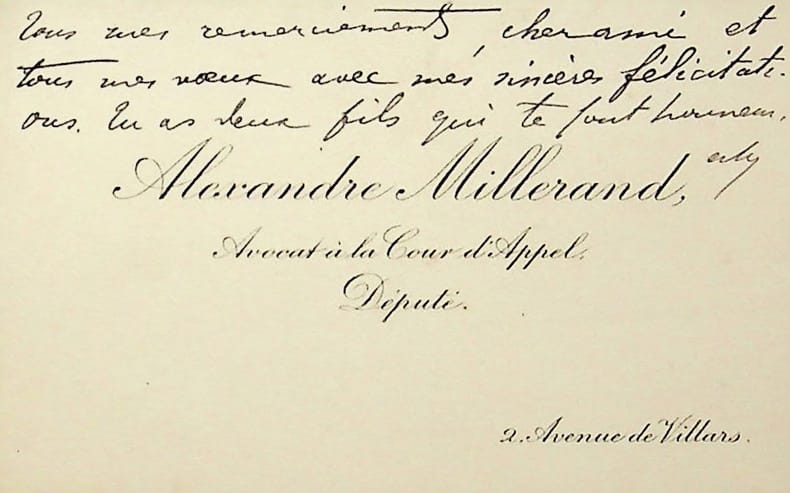 Tous mes remerciements, cher ami et
tous mes vœux avec mes sincères félicitati-
ons. Tu as deux fils qui te font honneur.
Alexandre Millerand,
Avocat à la Cour d'Appel.
Député.
2, Avenue de Villars.